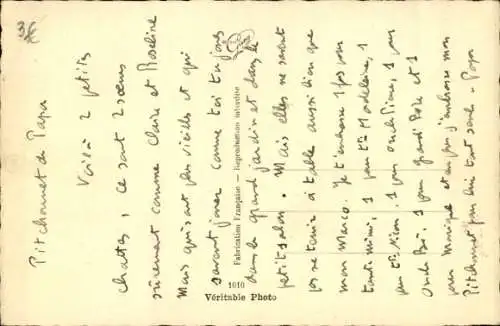 3€
Pitchounet du Papa
Voilà 2 petits
chatas, ce sont 2 sœurs
sûrement comme Claire et Roseline
Mais qui sont plus vieilles et qui
savent jouer comme toi toujours
dans le grand jardin et dans le
petit salon. Mais elles ne savent
pas se tenir à table aussi bien que
mon Marco. Je t'embrasse 1 fois pour
tante mimi, 1 pour tte Madeleine, 1
pour tte Ninon, 1 pour oncle Pierre, 1 pour
Oncle Bô, 1 pour Grand Père et 1
pour Monique et en plus j'embrasse mon
Pitchounet pour lui tout seul. Papa
Fabrication Française — Reproduction interdite
1010
Véritable Photo